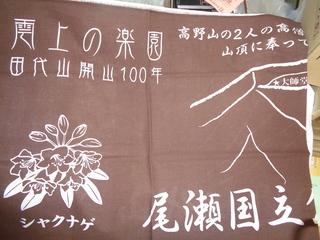 雲上の楽園
田代山開山100年
高野山の2人の高僧
山頂に奉って
大師堂
シャクナゲ
尾瀬国立